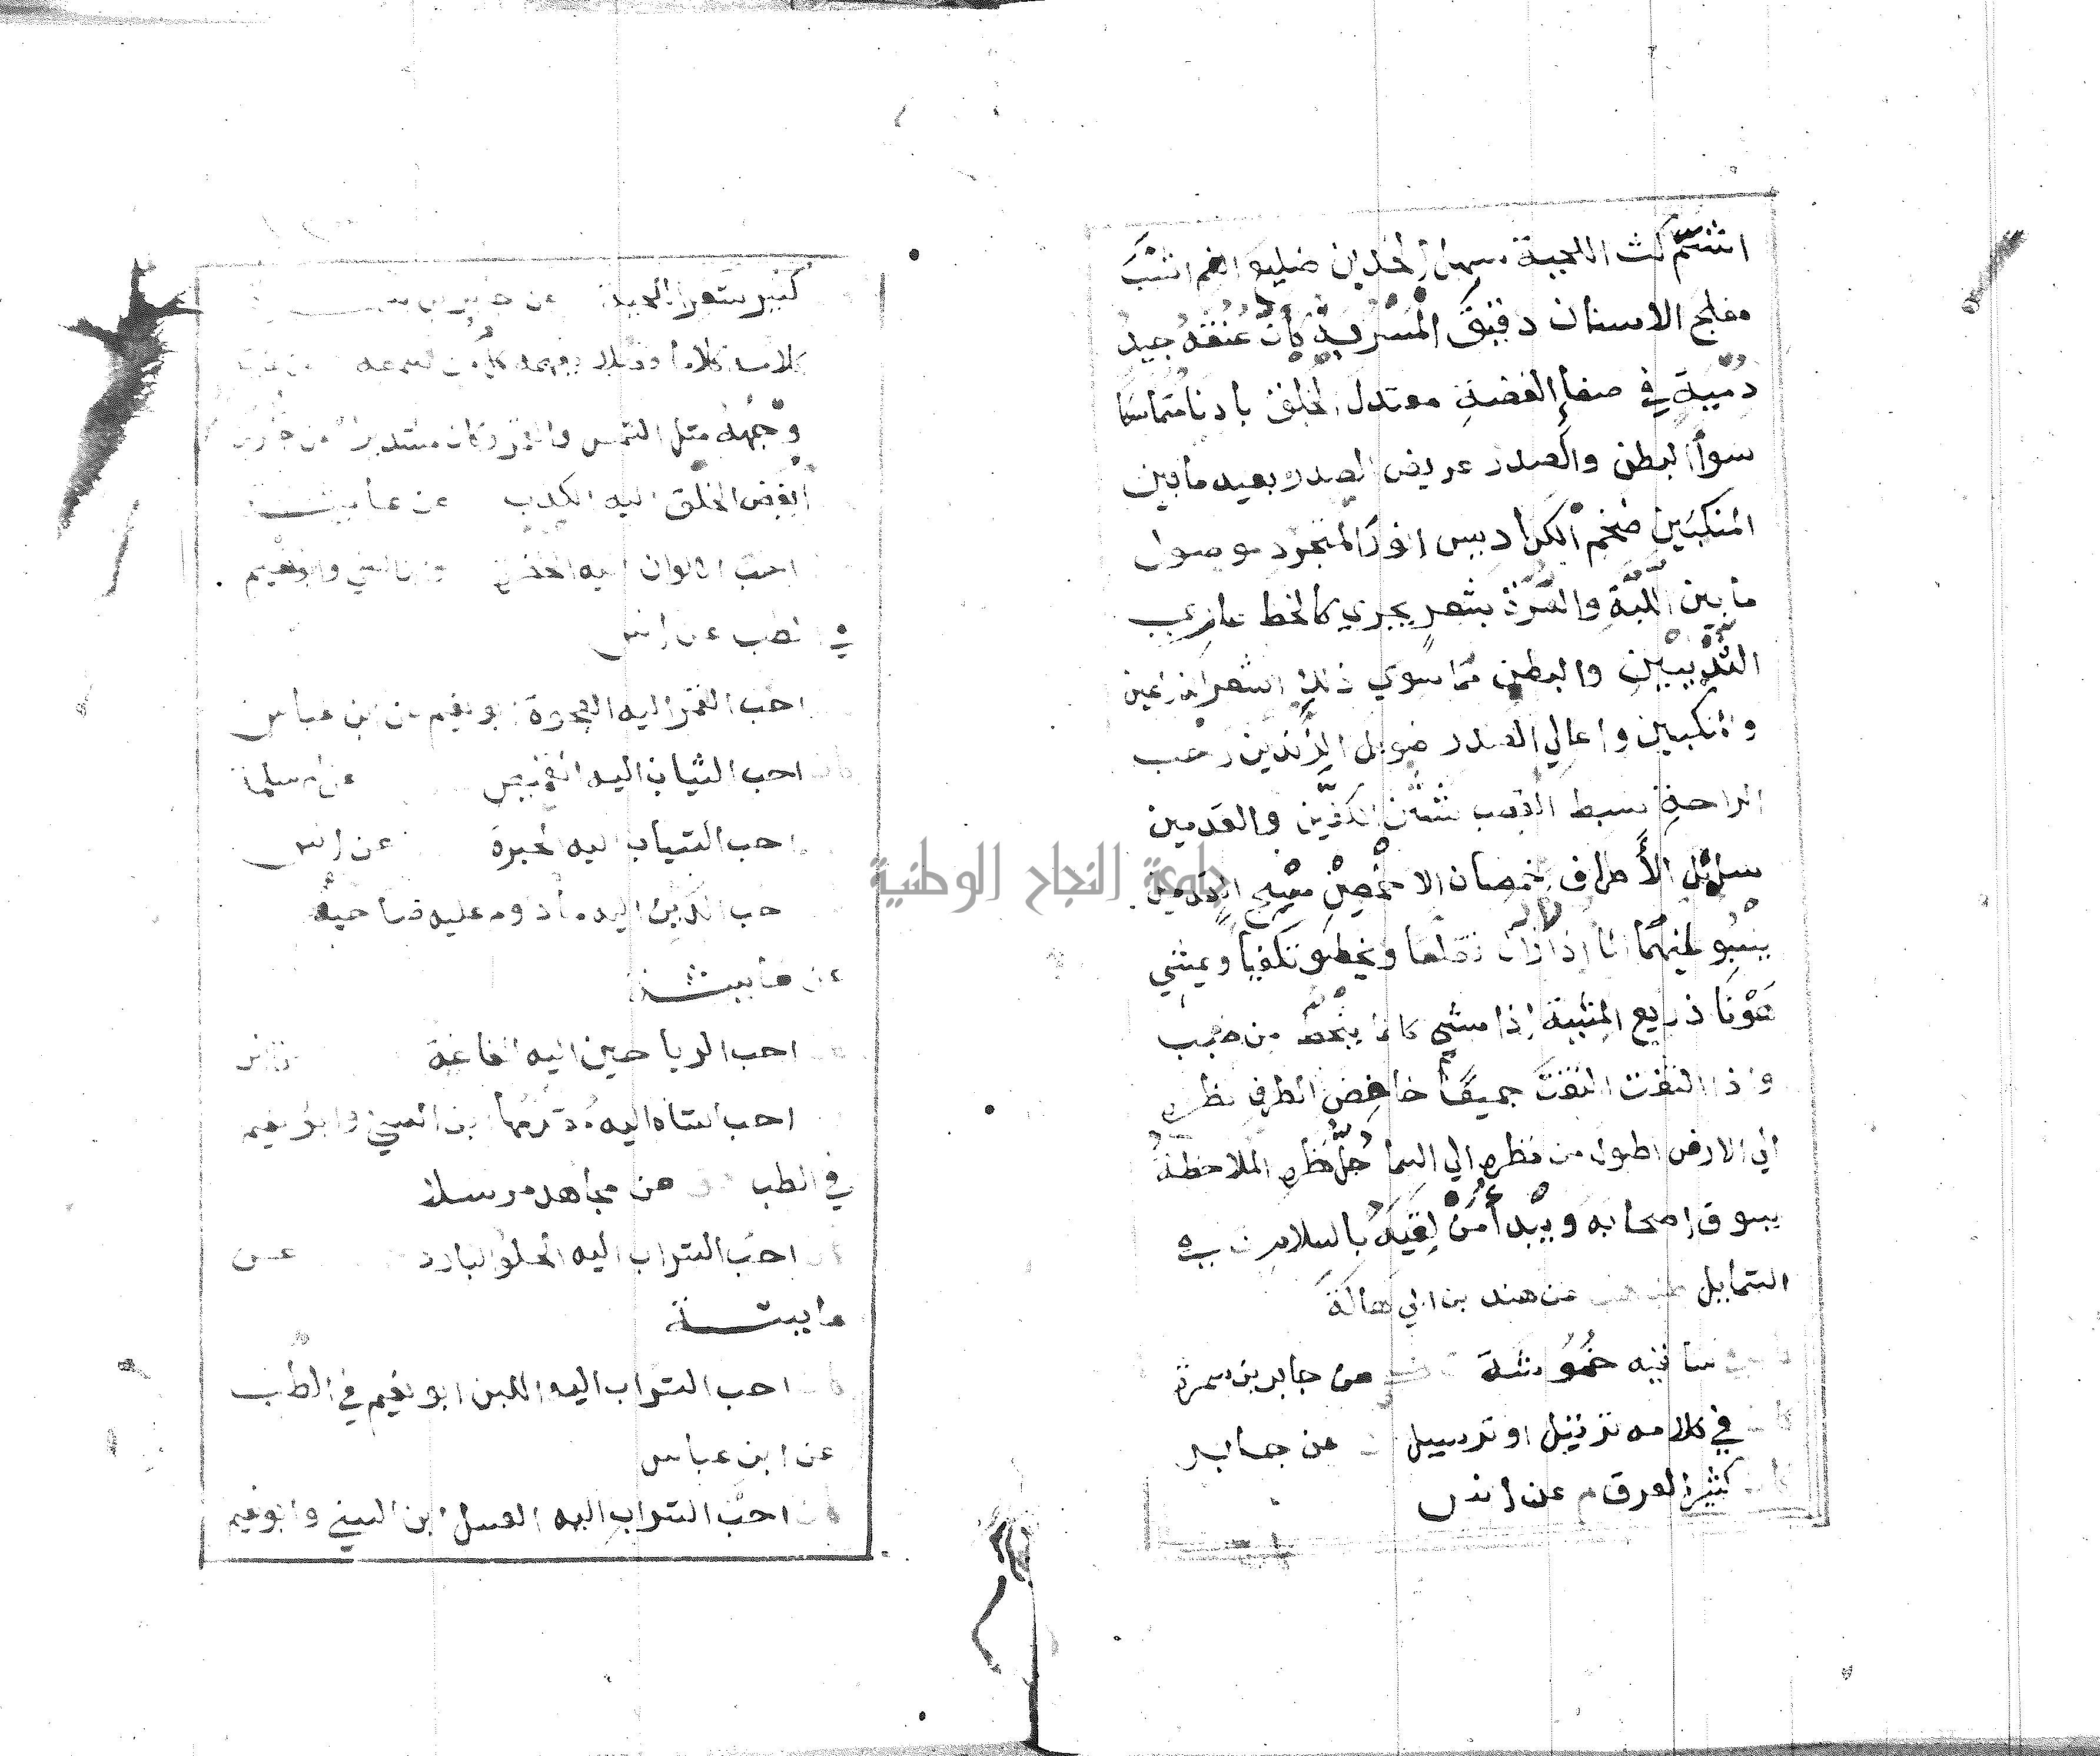 اشم كث اللحية سهل الخدين ضليع الفم اشنب
مفلج الاسنان دقيق المَسْرُبة كان عُنقه جيدُ
دُمْيَةٍ في صفاء الفضة معتدل الخلق بادنا متماسكا
سواء البطن والصدر عريض الصدر بعيد ما بين
المنكبين ضخم الكراديس انور المتجرد موصول
ما بين اللَّبَّةِ والسُّرَّة بشعرٍ يجري كالخط عاري
الثديين والبطن مما سوى ذلك اشعر الذراعين
والمنكبين واعالي الصدر طويل الزندين رحب
الراحة سبط القصب شثن الكفين والقدمين
سائل الأطراف خمصان الاخمصين مسيح القدمين
ينبو عنهما الماء اذا زال تقلعا ويخطو تكفيا ويمشي
هَوْنًا ذريع المشية اذا مشى كانما ينحط من صبب
واذا التفت التفت جميعًا خافض الطرف نظره
الى الارض اطول من نظره الى السما جُلُّ نظره الملاحظةُ
يسوق اصحابه ويبدأ مَنْ لقيه بالسلام ت في
الشمايل عن هند بن ابي هالة
في ساقيه حُمُوشة عن جابر بن سمرة
كان في كلامه ترتيل او ترسيل عن جابر
كان كثير العرق م عن انس
كثير شعر اللحية عن جابر بن
كلامه كلاما فصلا يفهمه كل من سمعه
وجهه مثل الشمس والقمر وكان مستديرا من جابر
أبغض الخلق اليه الكذب عن عايشة
احب الالوان اليه الخضرة ابن السني وابو نعيم
في الطب عن انس
احب التمر اليه العجوة ابو نعيم عن ابن عباس
كان احب الثياب اليه القميص عن ام سلمة
احب الثياب اليه الحبرة عن انس
احب الدين اليه ما داوم عليه صاحبهُ
عن عايشة
احب الرياحين اليه الفاغية عن انس
احب الشاة اليه مُقَدَّمُها ابن السني وابو نعيم
في الطب هق عن مجاهد مرسلا
كان احب الشراب اليه الحلو البارد عن
عايشة
كان احب الشراب اليه اللبن ابو نعيم في الطب
عن ابن عباس
كان احب الشراب اليه العسل ابن السني وابو نعيم
جامعة النجاح الوطنية